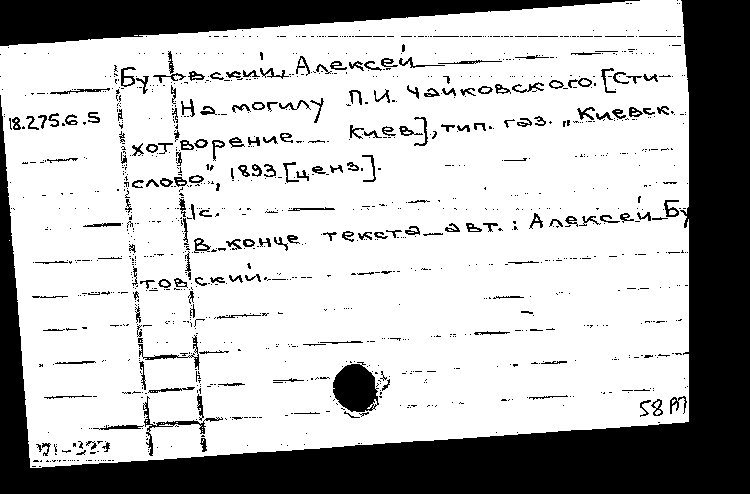 Бутовский, Алексей
На могилу П.И. Чайковского. [Сти-
18.275.6.5
хотворение Киев], тип. газ. „Киевск.
слово", 1893 [ценз.].
1с.
В конце текста авт.: Алексей Бу
товский.
58 РП
71-327